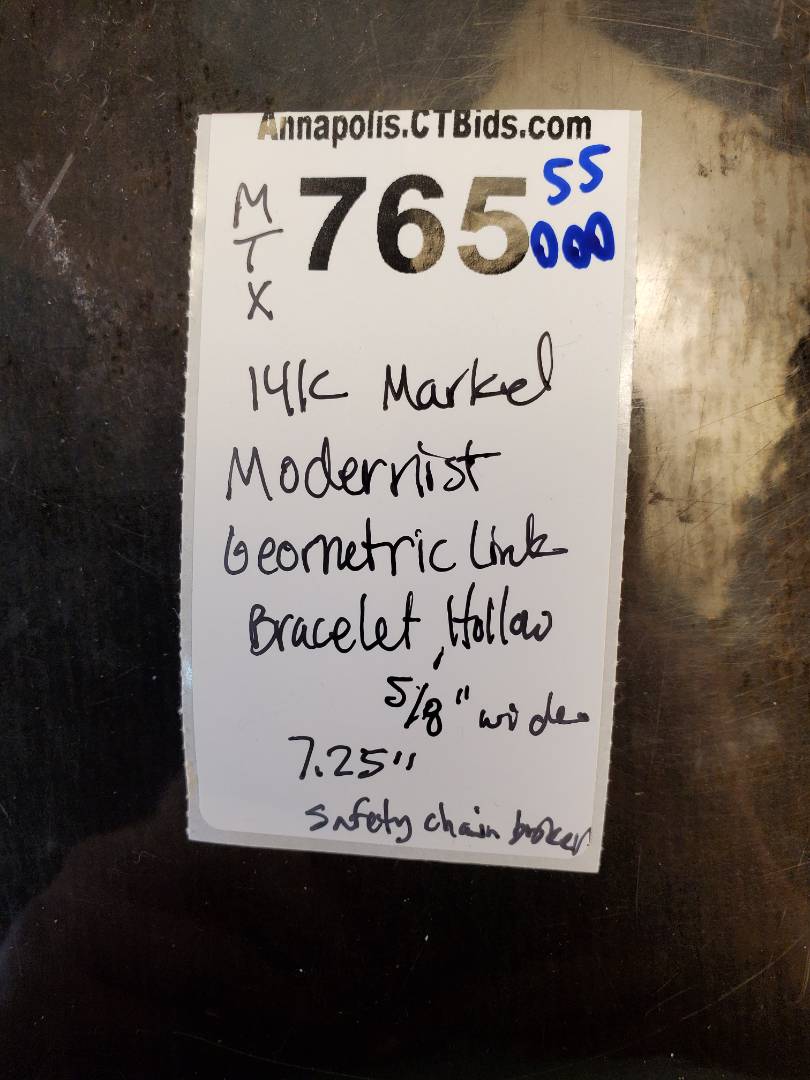 Annapolis.CTBids.com
M
T
X
765
55
000
14K Marked
Modernist
Geometric Link
Bracelet, Hollow
5/8" wide
7.25"
Safety chain broken